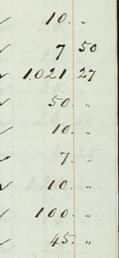 10. "
✓ 7 50
✓ 1.021 27
✓ 50. "
✓ 10. "
✓ 7. "
✓ 10. "
✓ 100. "
✓ 45. "